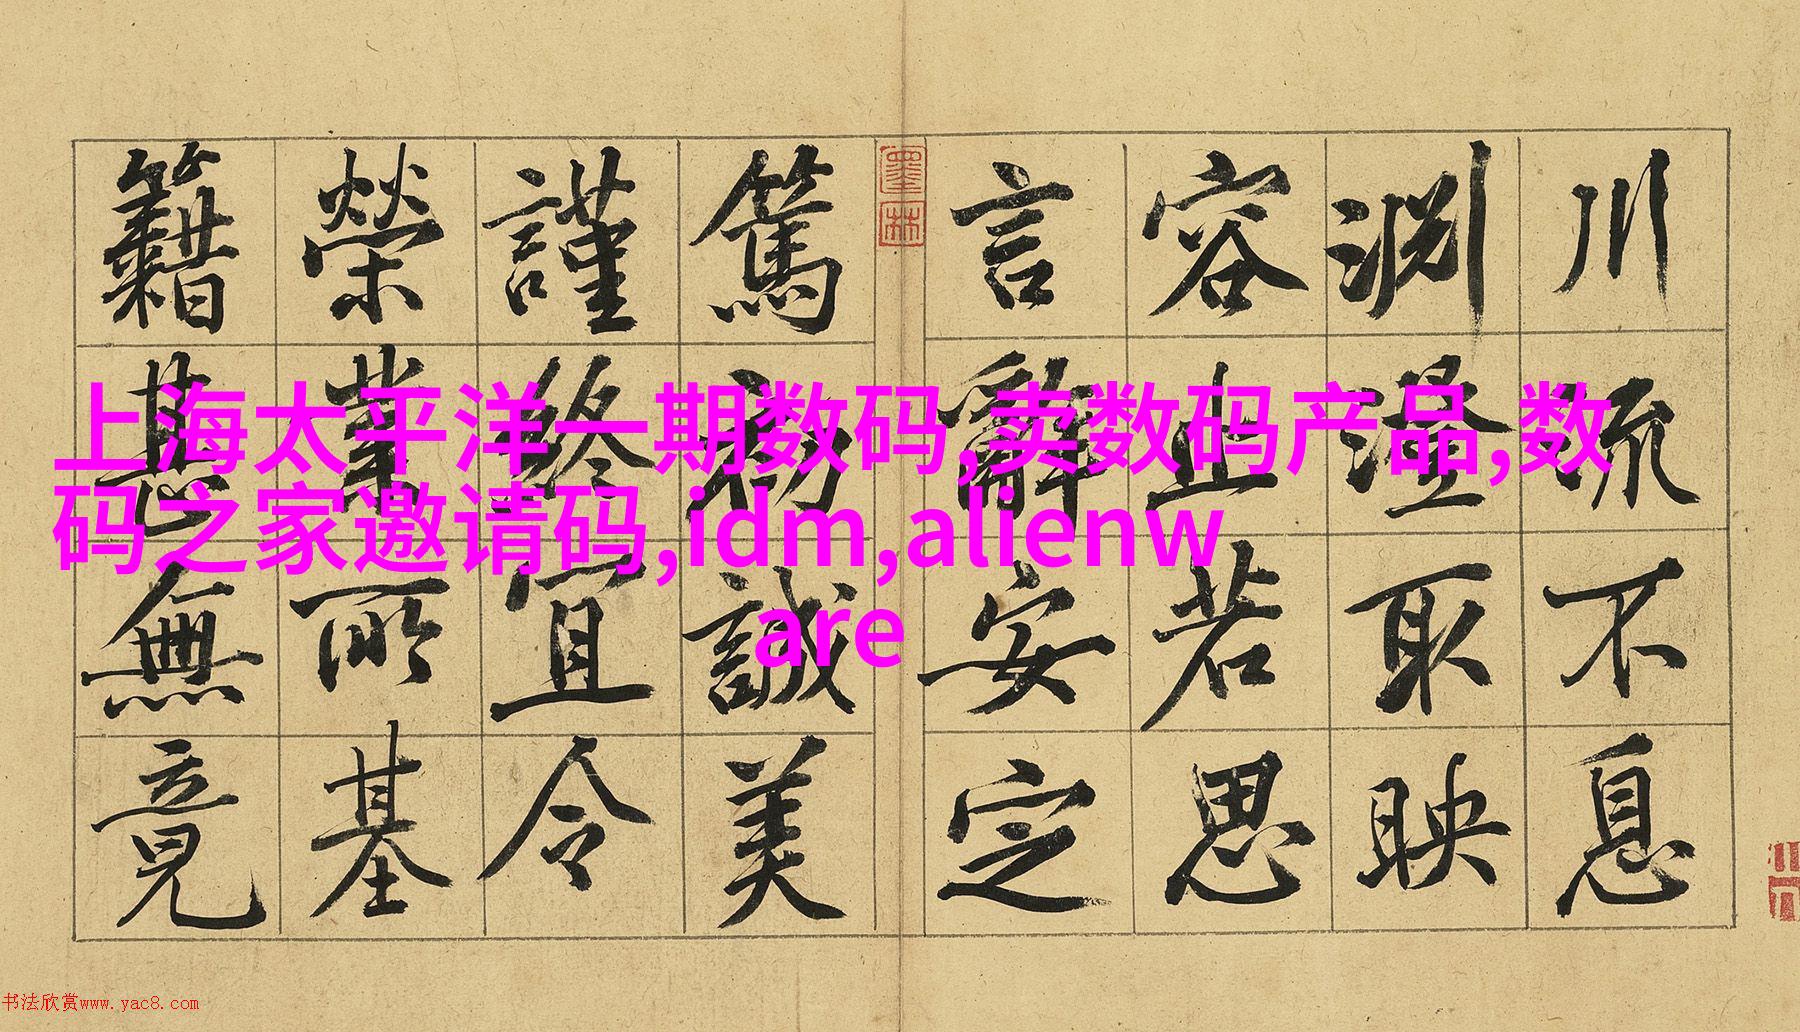 川流不息
渊澄取映
容止若思
言辭安定
篤初誠美
謹終宜令
榮業所基
籍甚無竟
墨林
上海太平洋一期数码,卖数码产品,数
码之家邀请码,idm,alienw
are
书法欣赏www.yac8.com